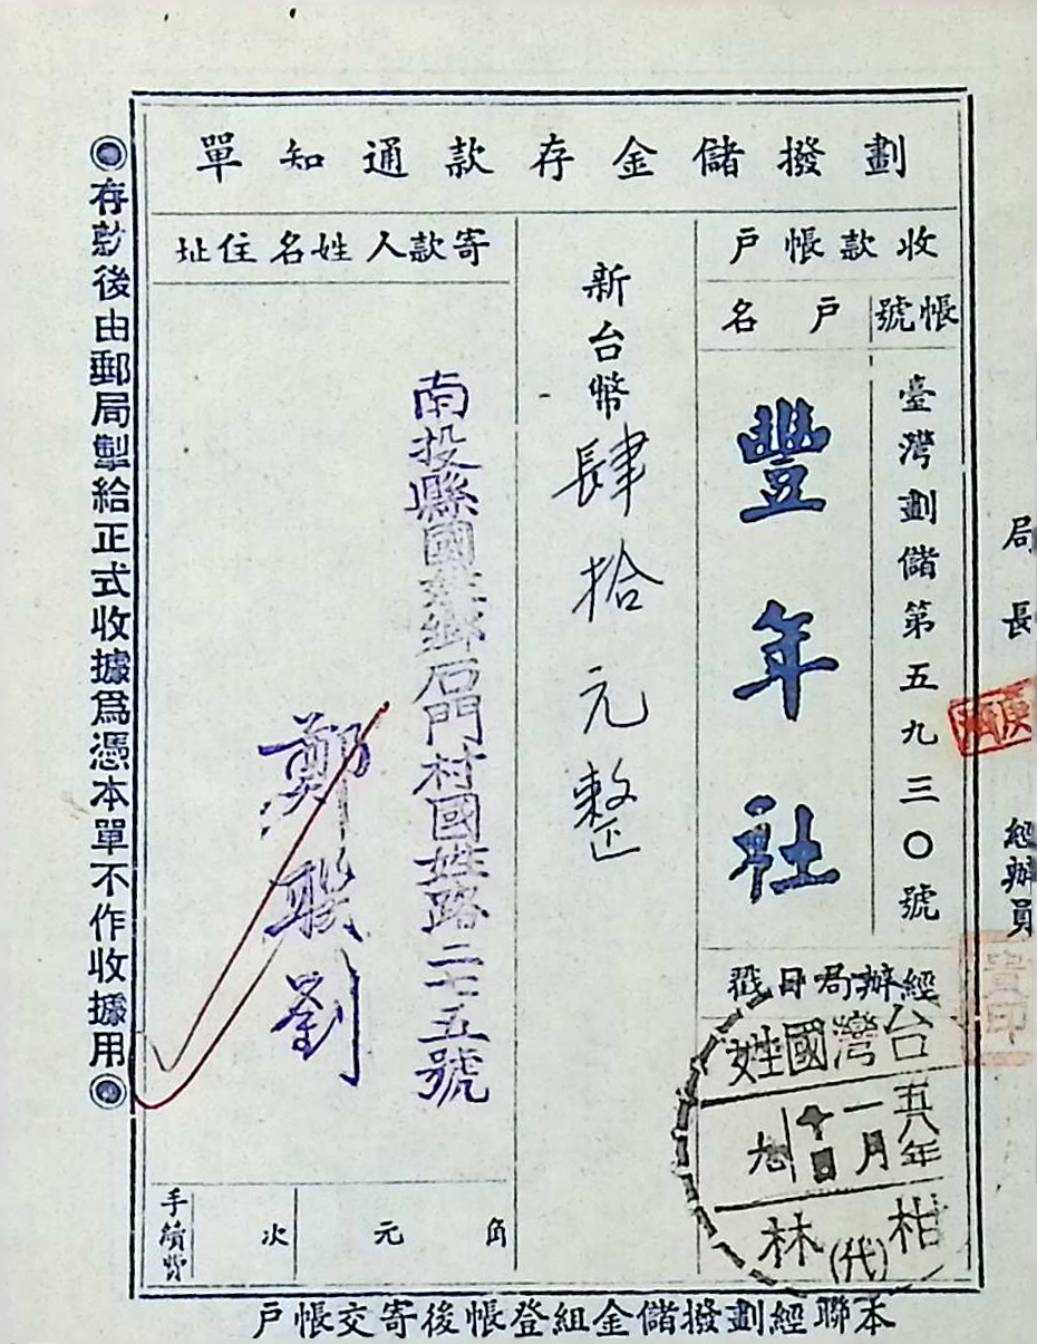 劃撥儲金存款通知單
收款帳戶
帳號
戶名
臺灣劃儲第五九三〇號
豐年社
經辦局日戳
台灣國姓
五八年
一月
十日
九
柑林(代)
新台幣肆拾元整
寄款人姓名住址
南投縣國姓鄉石門村國姓路二七五號
鄭聯劉
手續費
次
元
角
局長
經辦員
◎存款後由郵局掣給正式收據為憑本單不作收據用◎
本聯經劃撥儲金組登帳後寄交帳戶